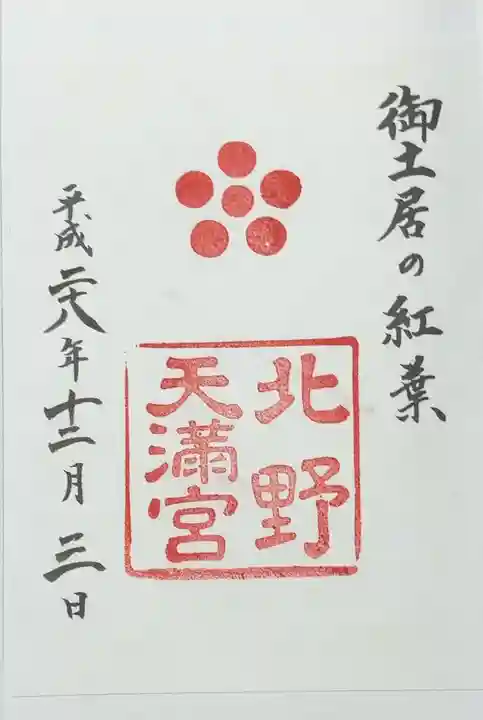 御土居の紅葉
北野
天満宮
平成二十八年十二月三日